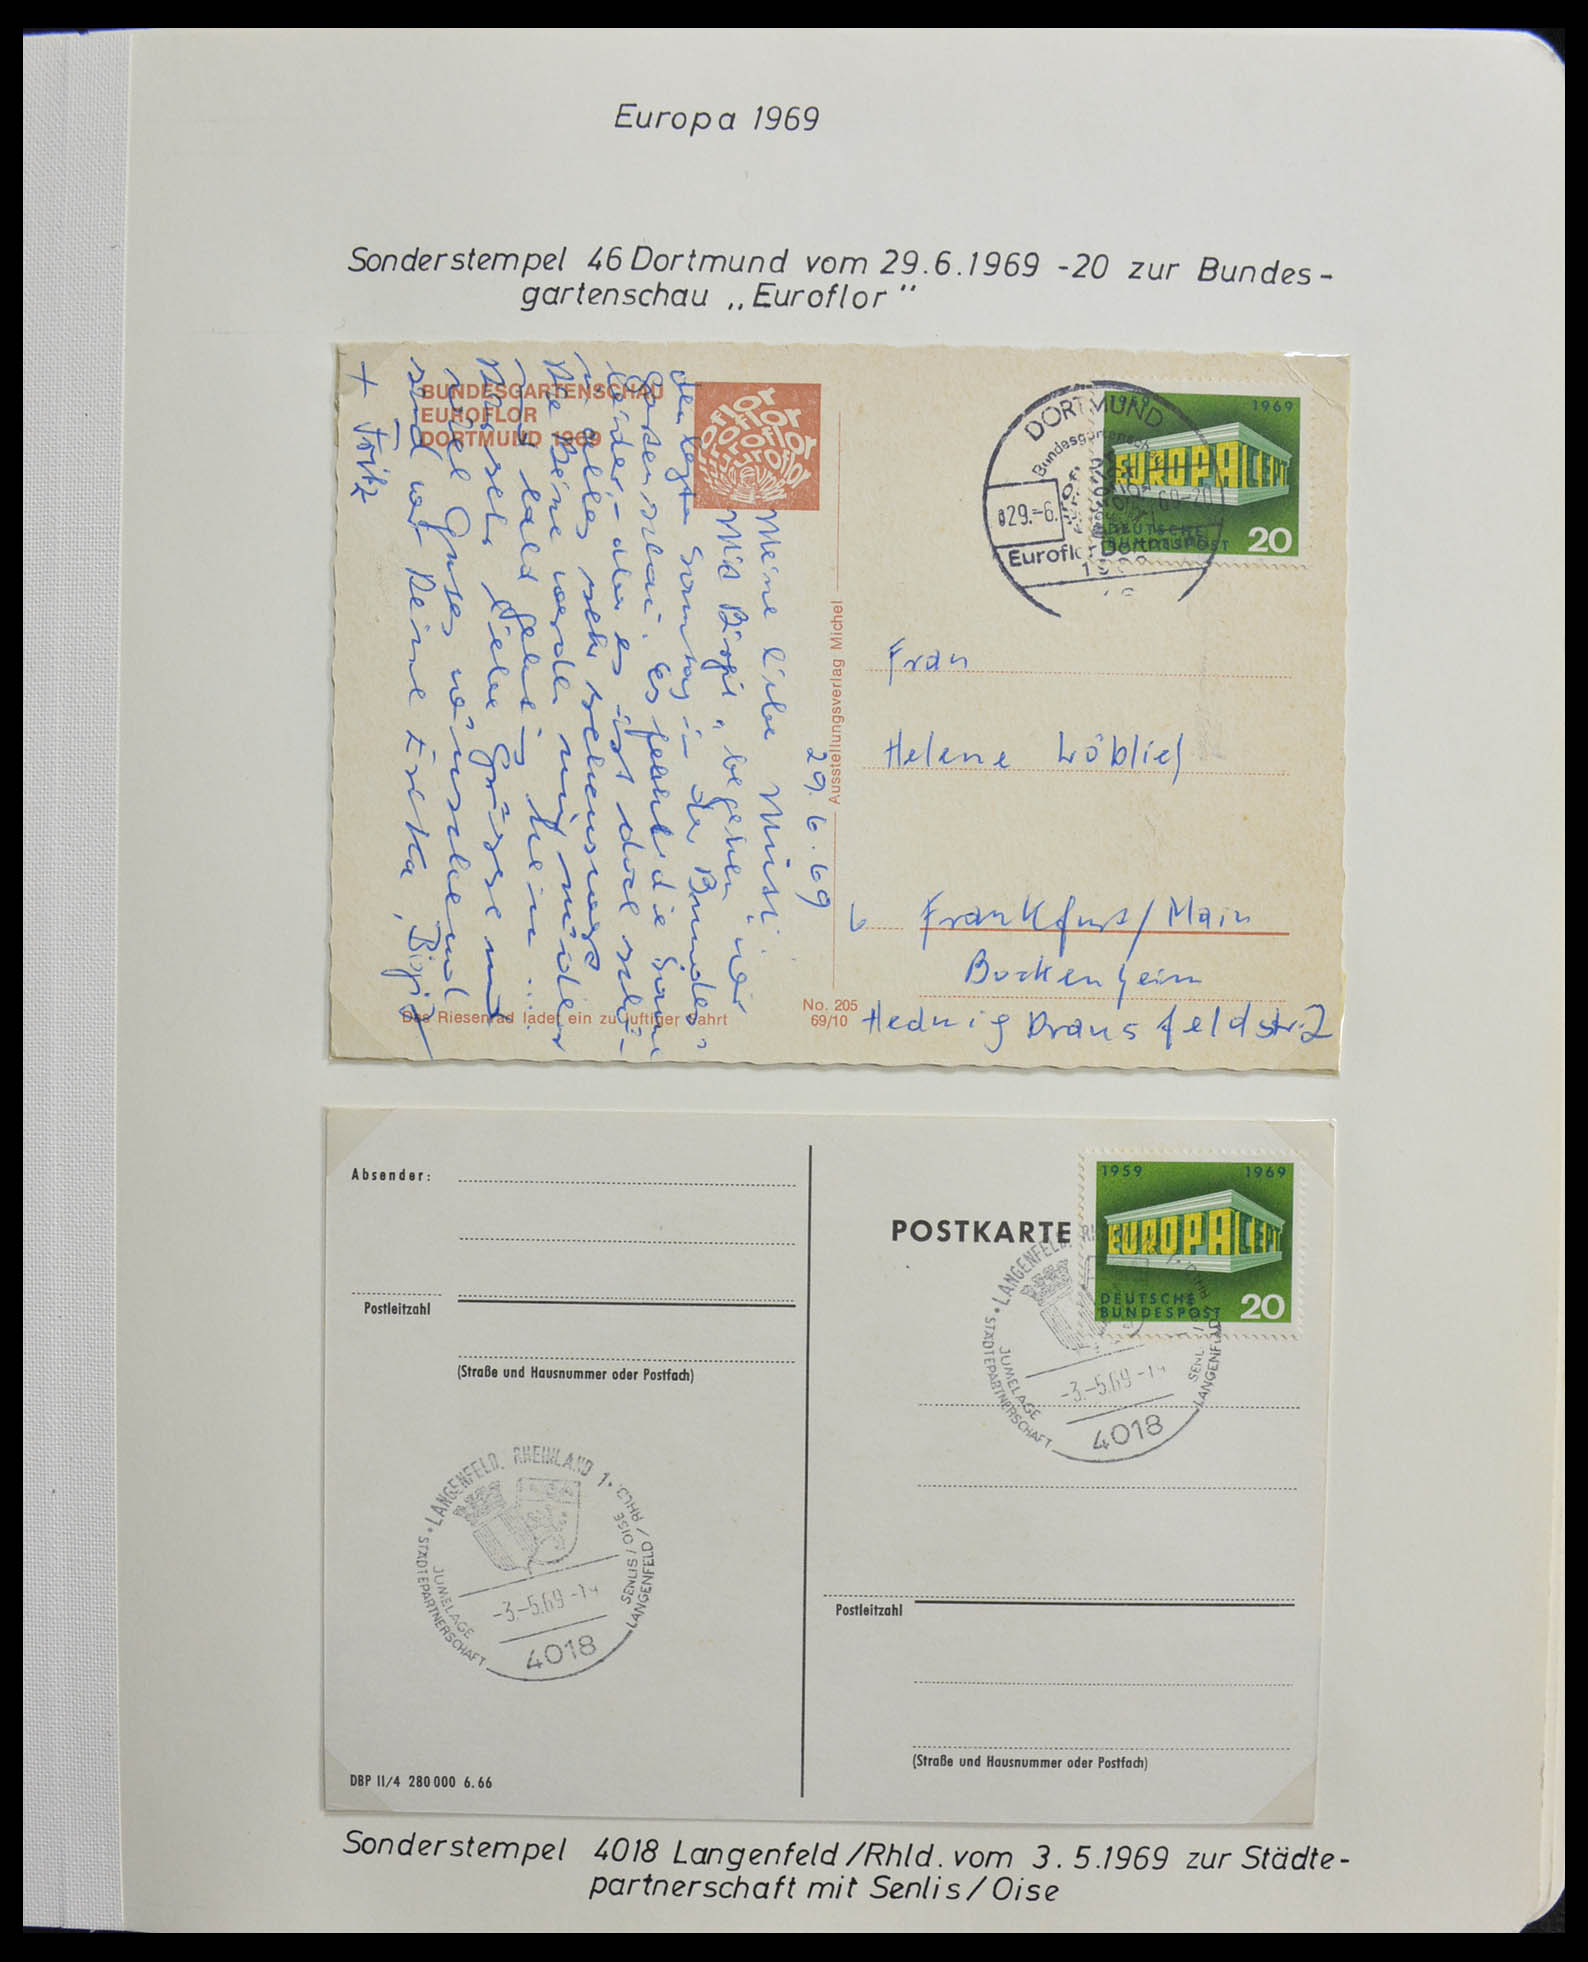 Europa 1969
Sonderstempel 46 Dortmund vom 29.6.1969 -20 zur Bundes-
gartenschau „Euroflor"
BUNDESGARTENSCHAU
EUROFLOR
DORTMUND 1969
29.6.69
Meine liebe Mutti.
Mit Birgit begehen wir
den letzten Sonntag in der Bundes-
gartenschau. Es fehlt die Sonne
leider, aber es ist doch
alles sehr sehenswert
Die Beine werden müder
bald
liebe Grüsse und
viel Gutes wünschend
sind wir Deine Erika, Birgit
+ Fritz
Das Riesenrad ladet ein zu luftiger Fahrt
No. 205
69/10
Ausstellungsverlag Michel
DORTMUND
Bundesgartensch
29.-6. 69-20
Euroflor Dortmund
1969
1959 1969
EUROPA CEPT
DEUTSCHE
BUNDESPOST 20
Frau
Helene Löblich
6 Frankfurt/Main
Bockenheim
Hedwig Dransfeldstr. 2
Absender:
Postleitzahl
(Straße und Hausnummer oder Postfach)
POSTKARTE
1959 1969
EUROPA CEPT
DEUTSCHE
BUNDESPOST 20
LANGENFELD, RH
JUMELAGE
STÄDTEPARTNERSCHAFT
SENL /
LANGENFELD
-3.-5.69-
4018
LANGENFELD, RHEINLAND 1
JUMELAGE
STÄDTEPARTNERSCHAFT
SENLIS / OISE
LANGENFELD / RHLD.
-3.-5.69-
4018
Postleitzahl
(Straße und Hausnummer oder Postfach)
DBP II/4 280 000 6.66
Sonderstempel 4018 Langenfeld/Rhld. vom 3.5.1969 zur Städte-
partnerschaft mit Senlis/Oise